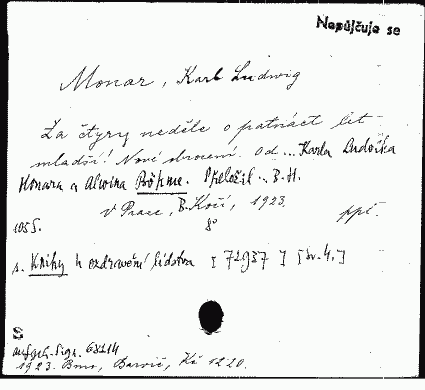 Nepůjčuje se
Monar, Karl Ludwig
Za čtyry neděle o patnáct let
mladší! Nové zrození. Od... Karla Ludvíka
Monara a Alwina Böhme. Přeložil .. B. H.
V Praze, B. Kočí, 1923. ppt.
103 S. 8°
s. Knihy k ozdravění lidstva [72937] [sv. 4.]
S
68114
1923. Brno, Barvič, Kč 12.20.